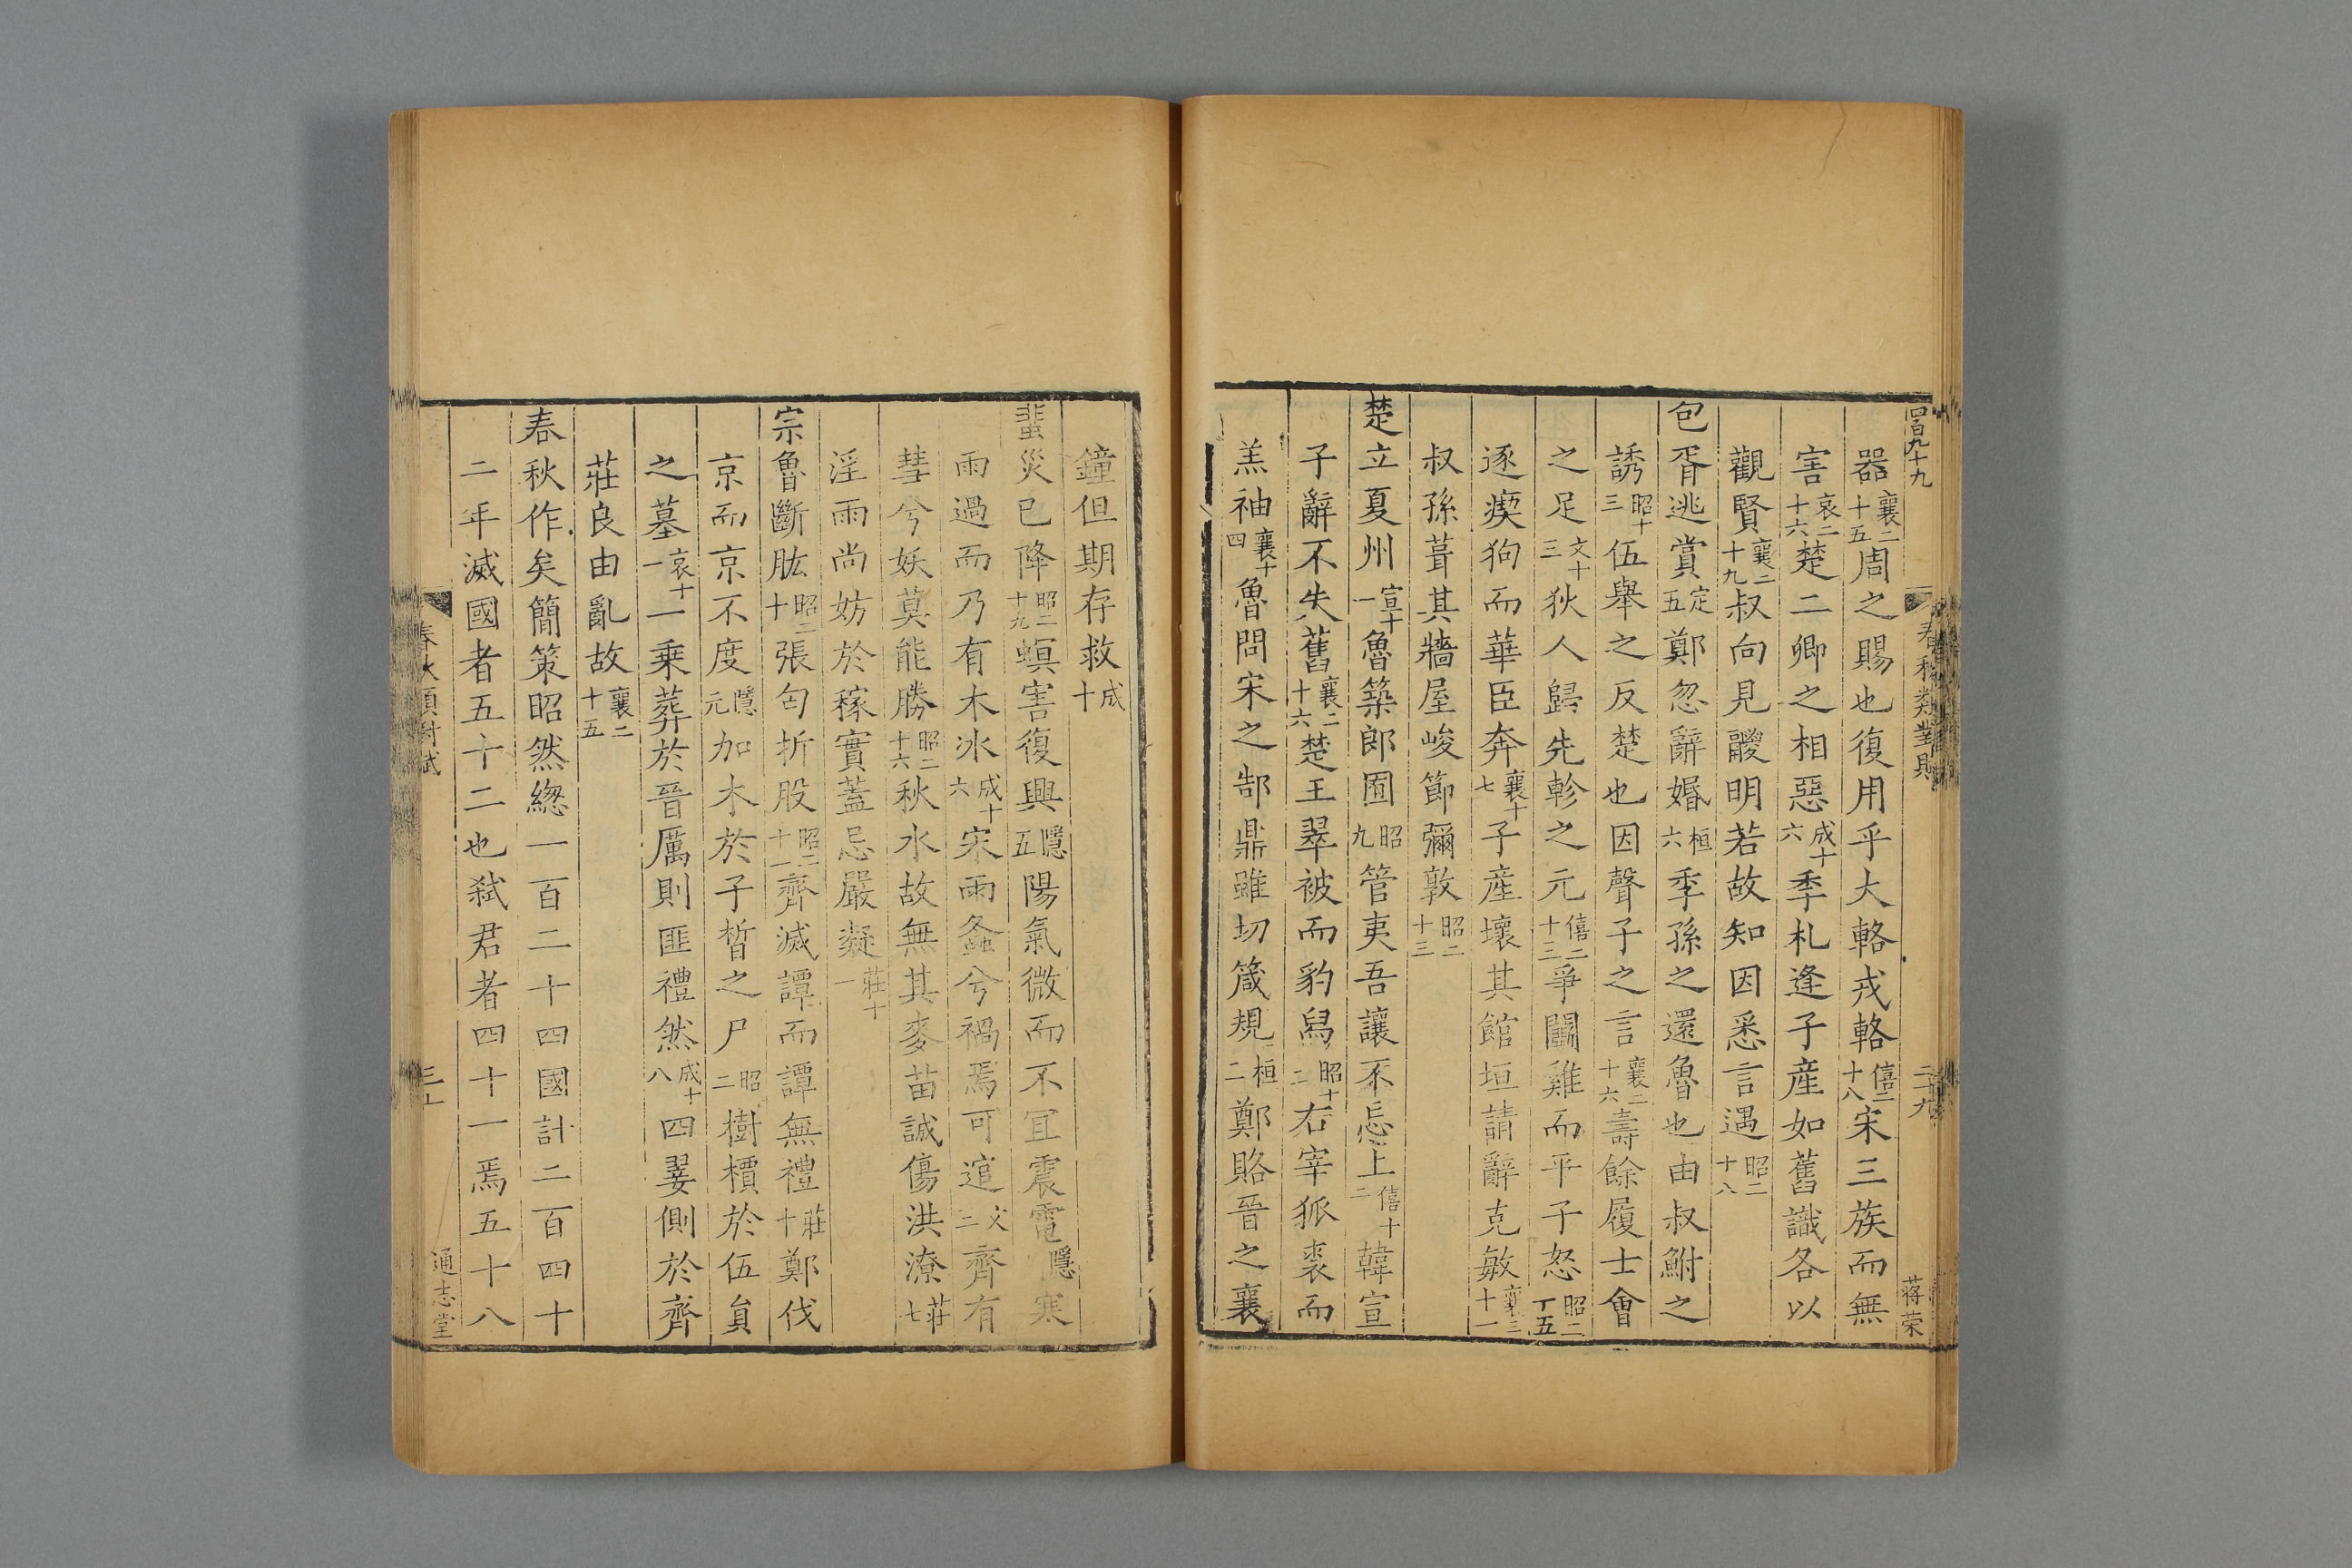 四百九十九
春秋類對賦
二十九
蒋荣
器襄二十五周之賜也復用乎大輅戎輅僖二十八宋三族而無
害哀二十六楚二卿之相惡成十六季札逢子產如舊識各以
觀賢襄二十九叔向見鬷明若故知因悉言遇昭二十八
包胥逃賞定五鄭忽辭婚桓六季孫之還魯也由叔鮒之
誘昭十三伍舉之反楚也因聲子之言襄二十六壽餘履士會
之足文十三狄人歸先軫之元僖二十三爭鬭雞而平子怒昭二十五
逐瘈狗而華臣奔襄十七子產壞其館垣請辭克敏襄三十一
叔孫葺其牆屋峻節彌敦昭二十三
楚立夏州宣十一魯築郎囿昭九管夷吾讓不忘上僖十二韓宣
子辭不失舊襄二十六楚王翠被而豹舄昭十二右宰狐裘而
羔袖襄十四魯問宋之郜鼎雖切箴規桓二鄭賂晉之襄
鐘但期存救成十
蜚災已降昭二十九螟害復興隱五陽氣微而不宜震電隱寒
雨過而乃有木冰成十六宋雨螽兮禍焉可逭文二齊有
彗兮妖莫能勝昭二十六秋水故無其麥苗誠傷洪潦莊七
淫雨尚妨於稼實蓋忌嚴凝莊十一
宗魯斷肱昭二十張匄折股昭二十一齊滅譚而譚無禮莊十鄭伐
京而京不度隱元加木於子晳之尸昭二樹檟於伍員
之墓哀十一一乘葬於晉厲則匪禮然成十八四翣側於齊
莊良由亂故襄二十五
春秋作矣簡策昭然緫一百二十四國計二百四十
二年滅國者五十二也弑君者四十一焉五十八
通志堂